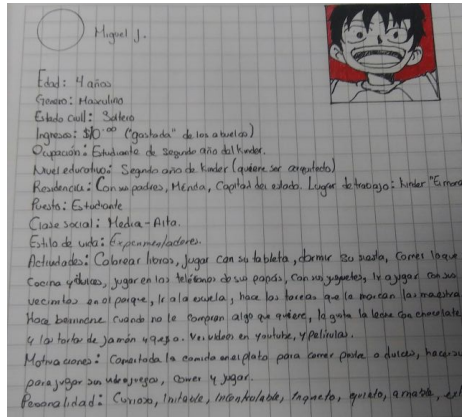 Miguel J.
Edad: 4 años
Genero: Masculino
Estado civil: Soltero
Ingresos: $10.00 ("gastada" de los abuelos)
Ocupación: Estudiante de segundo año del kinder.
Nivel educativo: Segundo año de kinder (quiere ser arquitecto)
Residencia: Con sus padres, Merida, Capital del estado. Lugar de trabajo: kinder
Puesto: Estudiante
Clase social: Media-Alta.
Estilo de vida: Experimentadores.
Actividades: Colorear libros, jugar con su tableta, dormir su siesta, comer lo que
cocina y dulces, jugar en los telefonos de sus papás, con sus juguetes, ir a jugar con sus
vecinitos en el parque, ir a la escuela, hace las tareas que le marcan las maestra
Hace berrinche cuando no le compran algo que quiere, le gusta la leche con chocolate
y las tortas de jamón y queso. Ver videos en youtube, y peliculas.
Motivaciones: la comida en el plato para comer postre o dulces, hacer
para jugar sus videojuegos, comer y jugar.
Personalidad: Curioso, Irritable, Incontrolable, Inquieto, amable,